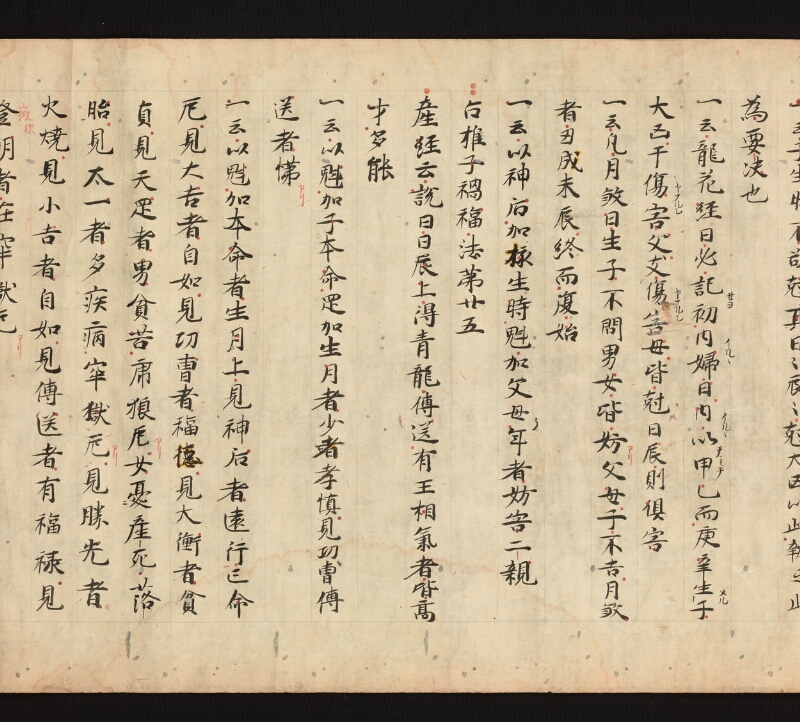 為要決也
一云龍花經曰必記初內婦日內以甲乙而庚辛生子
大凶干傷害父支傷害母皆剋日辰則俱害
一云凡月煞日生子不問男女皆妨父母子不吉月煞
者丑戌未辰終而復始
一云以神后加 生時魁加父母年者妨害二親
占推子禍福法第廿五
產經云說曰日辰上得青龍傳送有王相氣者皆高
才多能
一云以魁加子本命足加生月者少者孝慎見功曹傳
送者悌
一云以魁加本命者生月上見神后者遠行亡命
厄見大吉者自如見功曹者福德見大衝者貧
貞見天罡者男貧苦虎狼厄女憂產死落
胎見太一者多疾病牢獄厄見勝先者
火燒見小吉者自如見傳送者有福祿見
登明者在牢獄厄